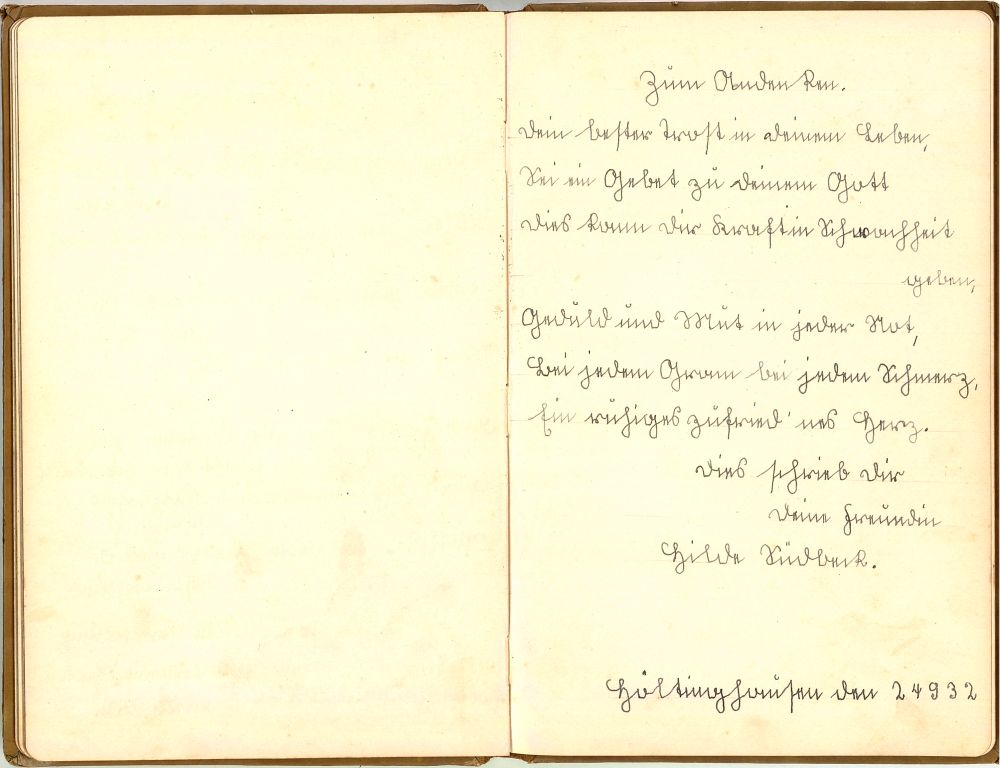 Zum Andenken.
Dein bester Trost in deinem Leben,
Sei ein Gebet zu deinem Gott
Dies kann dir Kraft in Schwachheit
geben,
Geduld und Mut in jeder Not,
Bei jedem Gram bei jedem Schmerz,
Ein ruhiges zufried'nes Herz.
Dies schrieb Dir
Deine Freundin
Hilde Südbeck.
Höltinghausen den 24932